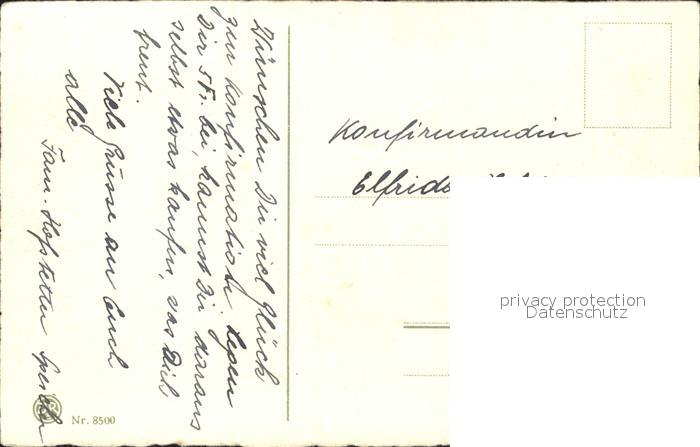 Wünschen Dir viel Glück
zur Konfirmation legen
Dir 5 Fr. bei, kannst Dir daraus
selbst etwas kaufen, was Dich
freut.
Viele Grüsse an Euch
alle
Fam. Hofstetter
Konfirmandin
Elfride
privacy protection
Datenschutz
Nr. 8500